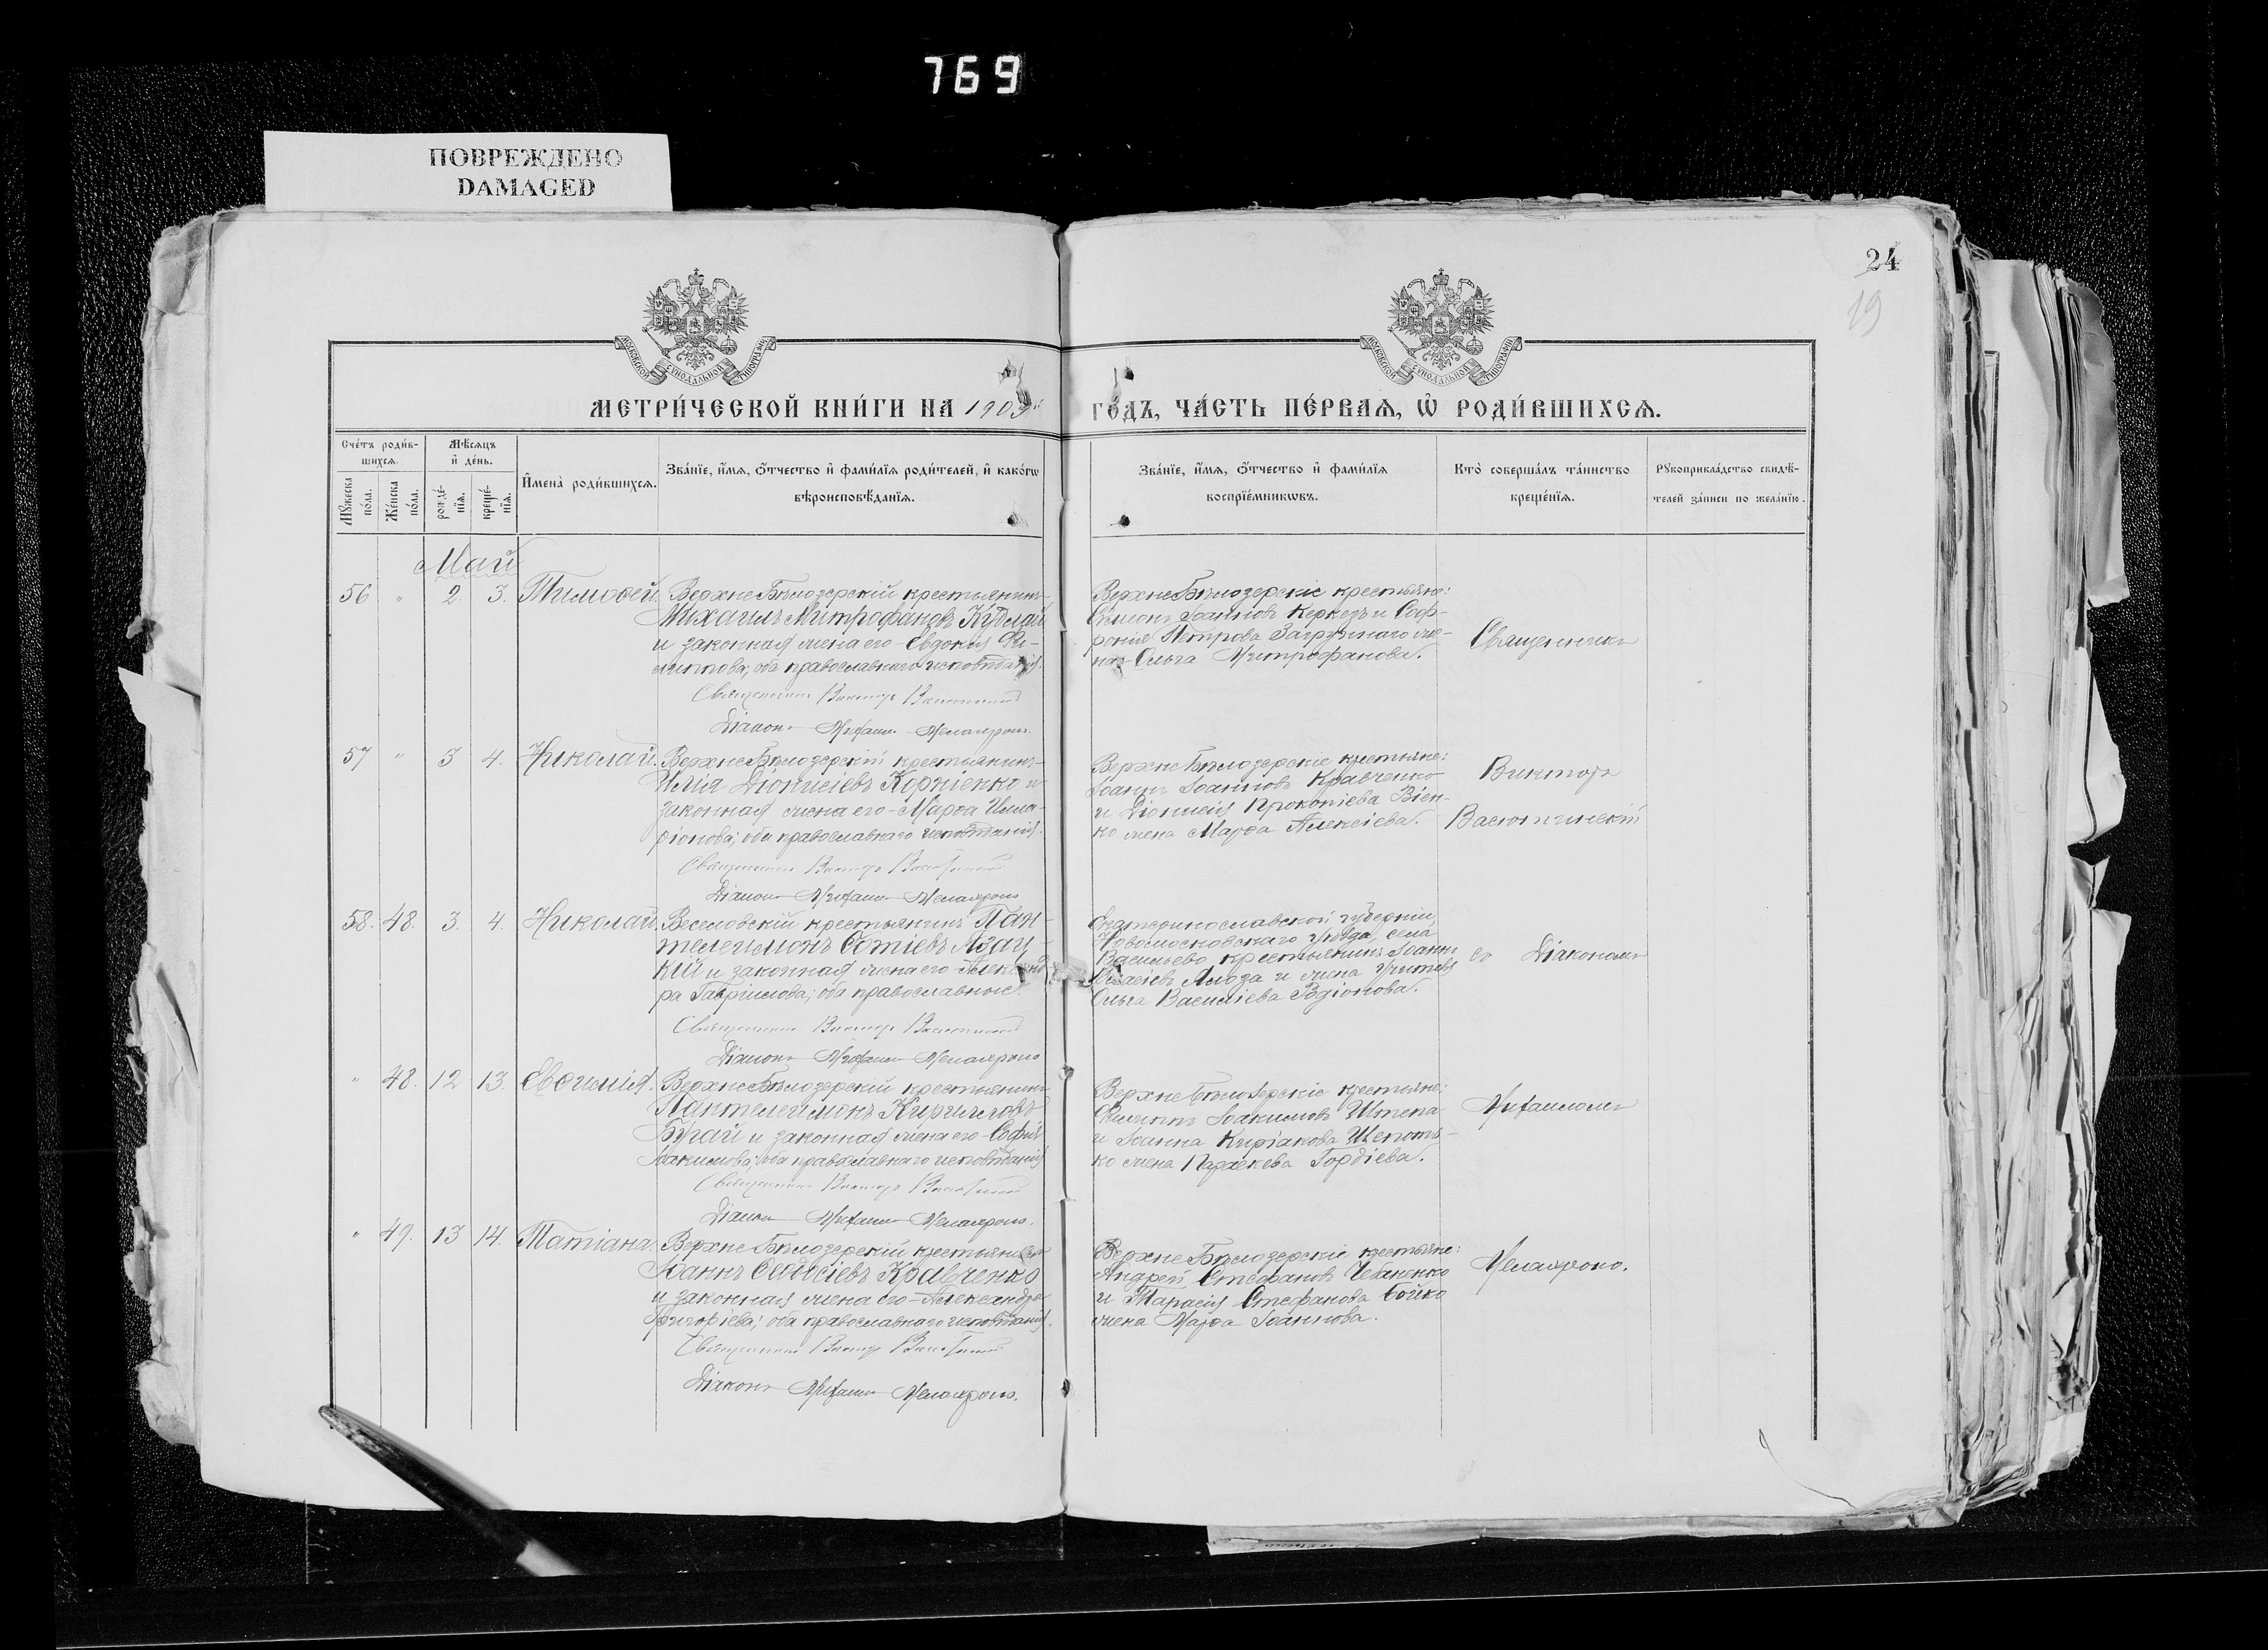 769
ПОВРЕЖДЕНО
DAMAGED
24
19
МОСКОВСКОЙ СѴНОДАЛЬНОЙ ТИПОГРАФІИ
МОСКОВСКОЙ СѴНОДАЛЬНОЙ ТИПОГРАФІИ
МЕТРИ́ЧЕСКОЙ КНИ́ГИ НА 1903й ГО́ДЪ, ЧА́СТЬ ПЕ́РВАЯ, Ѡ РОДИ́ВШИХСЯ.
Сче́тъ роди́в-
шихся.
Мꙋ́жеска по́ла.
Же́нска по́ла.
Мѣ́сяцъ
и де́нь.
рожде́-
нїя.
креще́-
нїя.
Имена̀ роди́вшихся.
Зва́нїе, и́мя, о́тчество и фами́лїя роди́телей, и како́гѡ
вѣроисповѣ́данїя.
Зва́нїе, и́мя, о́тчество и фами́лїя
воспрїе́мникѡвъ.
Кто̀ соверша́лъ та́инство
креще́нїя.
Рꙋкоприкла́дство свидѣ́-
телей за́писи по жела́нїю.
Май
56 " 2. 3. Тимоѳей.
Верхне Бѣлозерскій крестьянинъ
Михаилъ Митрофановъ Кудлай
и законная жена его Евдокія Фи-
липпова; оба православнаго исповѣданія.
Священникъ Викторъ
Діаконъ Михаилъ
Верхне Бѣлозерскіе крестьяне:
Симонъ Іоанновъ Керкезъ и Соф-
ронія Петрова Загружнаго же-
на Ольга Митрофанова.
Священникъ
57 " 3 4. Николай.
Верхне Бѣлозерскій крестьянинъ
Илія Діонисіевъ Корніенко и
законная жена его Марѳа Илла-
ріонова; оба православнаго исповѣданія.
Священникъ Викторъ
Діаконъ Михаилъ
Верхне Бѣлозерскіе крестьяне:
Іоаннъ Іоанновъ Кравченко
и Діонисія Прокопіева Візн-
ко жена Марѳа Алексіева.
Викторъ
58. 48. 3. 4. Николай.
Веселовскій крестьянинъ Пан-
телеимонъ Фотіевъ
кій и законная жена его Александ-
ра Гавріилова; оба православные.
Священникъ Викторъ
Діаконъ Михаилъ
Екатеринославской губерніи,
Новомосковскаго уѣзда, села
Васильево, крестьянинъ Іоаннъ
и жена учителя
Ольга Василіева Родіонова.
съ Діакономъ
" 48. 12 13. Евѳимія.
Верхне Бѣлозерскій крестьянинъ
Пантелеимонъ Кирилловъ
Бугай и законная жена его Софія
Іоакимова; оба православнаго исповѣданія.
Священникъ Викторъ
Діаконъ Михаилъ
Верхне Бѣлозерскіе крестьяне:
Филиппъ Іоакимовъ Штепа
и Іоанна Киріакова Шепоть-
ко жена Параскева Гордіева.
Михаиломъ
" 49. 13 14. Татіана.
Верхне Бѣлозерскій крестьянинъ
Іоаннъ Кравченко
и законная жена его Александра
Григоріева; оба православнаго исповѣданія.
Священникъ Викторъ
Діаконъ Михаилъ
Верхне Бѣлозерскіе крестьяне:
Андрей Стефановъ Чебаненко
и Тарасія Стефанова Бойко
жена Марѳа Іоаннова.